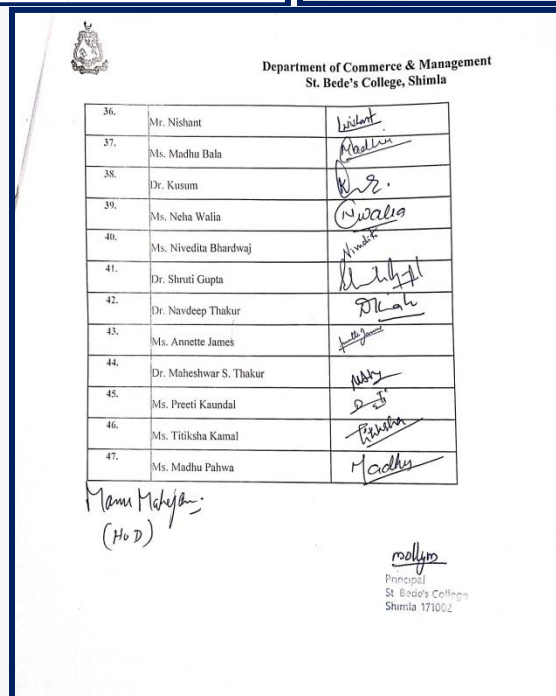 Department of Commerce & Management
St. Bede's College, Shimla
36. Mr. Nishant Nishant
37. Ms. Madhu Bala Madhu
38. Dr. Kusum
39. Ms. Neha Walia Nwalia
40. Ms. Nivedita Bhardwaj Nivedita
41. Dr. Shruti Gupta
42. Dr. Navdeep Thakur
43. Ms. Annette James Annette James
44. Dr. Maheshwar S. Thakur
45. Ms. Preeti Kaundal
46. Ms. Titiksha Kamal Titiksha
47. Ms. Madhu Pahwa Madhu
Manu Mahajan.
(HoD)
Principal
St Bede's College
Shimla 171002